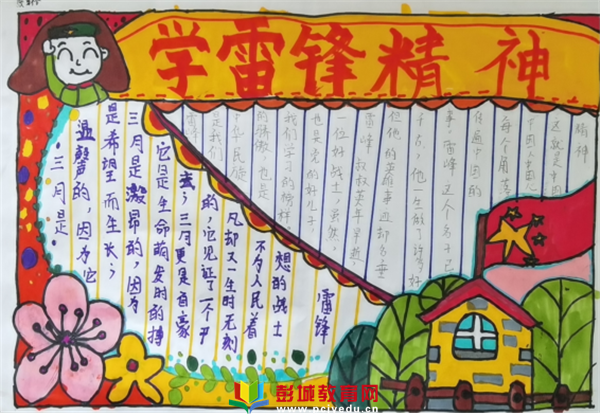 学雷锋精神
三月是
温馨的,因为它
是希望而生长;
三月是激昂的,因为
它是生命萌发时的搏
击;三月更是自豪
的,它见证了一个平
凡却又一生时无刻
不为人民着
想的战士
雷锋
雷锋
是我们
中华民族
的骄傲,也是
我们学习的榜样。
也是党的好儿子,
一位好战士,虽然
雷峰 叔叔英年早逝,
但他的英雄事迹却名垂
千古,他一生做了许多好
事。雷峰 这个名字已
遍中国的
每个角落
中国人
这就是中国
精神
彭城教育网
www.pcjyedu.cn